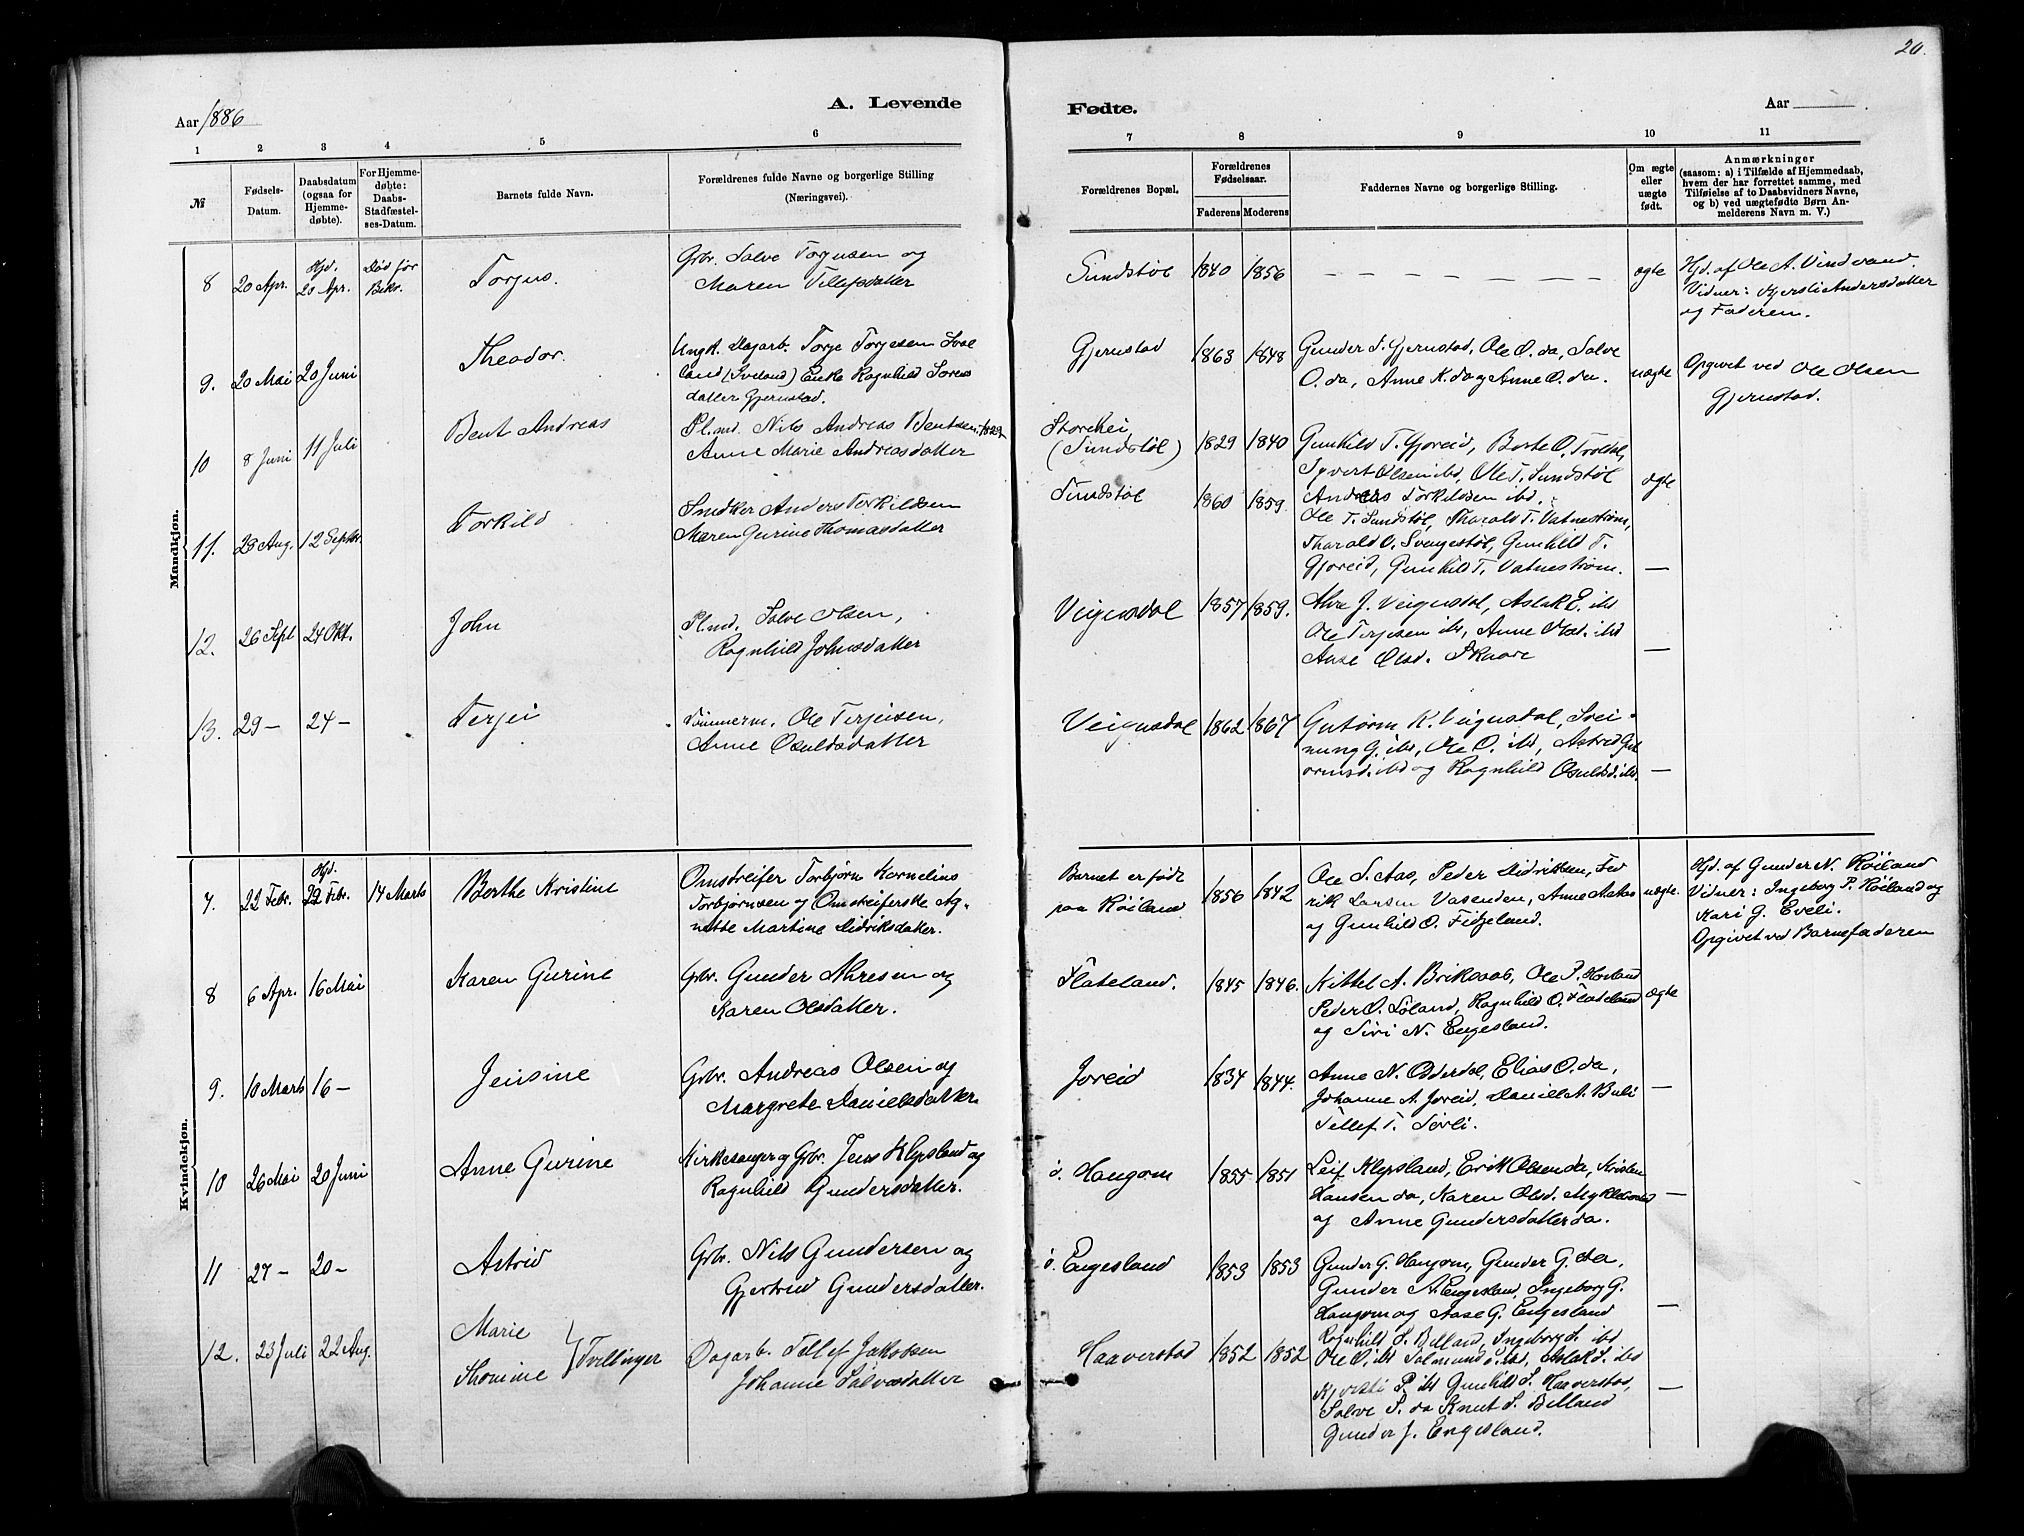 20.
A. Levende
Fødte.
Aar 1886
Aar
1 2 3 4 5 6
7 8 9 10 11
№
Fødsels-Datum.
Daabsdatum (ogsaa for Hjemme-døbte).
For Hjemme-døbte: Daabs-Stadfæstel-ses-Datum.
Barnets fulde Navn.
Forældrenes fulde Navne og borgerlige Stilling (Næringsvei).
Forældrenes Bopæl.
Forældrenes Fødselsaar.
Faderens Moderens
Faddernes Navne og borgerlige Stilling.
Om ægte eller uægte født.
Anmærkninger
(saasom: a) i Tilfælde af Hjemmedaab,
hvem der har forrettet samme, med
Tilføielse af to Daabsvidners Navne,
og b) ved uægtefødte Børn An-
melderens Navn m. V.)
Mandkjøn.
8 20 Apr. Hjd. 20 Apr. Død før Bekr. Torjus. Grbr. Salve Torjusen og
Maren Tellefsdatter
Sundstøl 1840 1856 — — — — — — ægte Hjd. af Ole A. Vindvand.
Vidner: Kjersti Andersdatter
og Faderen.
9. 20 Mai 20 Juni Theodor. Ungk. Dagarb. Torje Torjesen Ivel
land (Iveland) Enke Ragnhild Sorens
datter Gjerustad.
Gjerustad 1863 1848 Gunder S. Gjerustad, Ole O. da, Salve
O. da, Anne K. da og Anne O. da. uægte Opgivet ved Ole Olsen
Gjerustad.
10 8 Juni 11 Juli Bent Andreas Pl.md. Nils Andreas Bentsen 1829
Anne Marie Andreasdatter
Storehei
(Sundstøl) 1829 1840 Gunhild T. Gjoreid, Borte O. Troldal,
Syvert Olsen ibd, Ole T. Sundstøl ægte
Anders Torkildsen ibd.
11. 23 Aug. 12 Septbr. Torkild Snedker Anders Torkildsen
Maren Gurine Thomasdatter
Sundstøl 1860 1859. Ole T. Sundstøl, Tharald T. Vatnestrøm,
Tharald O. Svenestøl, Gunhild T.
Gjoreid, Gunhild T. Vatnestrøm. —
12. 26 Sept 24 Okt. John Pl.md. Salve Olsen,
Ragnhild Johnsdatter
Veigusdal 1857 1859. Alve J. Veigusdal, Aslak E. ibd
Ole Terjesen ibd, Anne Olsd. ibd
Aase Olsd. Skaare —
13. 29 — 24 — Terjei Tømmerm. Ole Terjeisen,
Anne Osuldsdatter
Veigusdal 1862 1867 Gutorm K. Veigusdal, Svei-
nung G. ibd, Ole O. ibd, Astrid Gut
ormsd. ibd og Ragnhild Osuldsd. ibd. —
Kvindekjøn.
7. 22 Febr. Hjd. 22 Febr. 14 Marts Berthe Kristine Omstreifer Torbjørn Kornelius
Torbjørnsen og Omstreiferske Ag-
nette Martine Didriksdatter.
Barnet er født
paa Røiland 1856 1842 Ole S. Aas, Peder Didriksen, Fed
rik Larsen Vasenden, Anne Aas
og Gunhild O. Fidjeland. uægte Hjd. af Gunder N. Røiland
Vidner: Ingeborg P. Røiland og
Kari G. Eveli.
Opgivet ved Barnefaderen
8 6 Apr. 16 Mai Karen Gurine Grbr. Gunder Alvesen og
Karen Olsdatter.
Flateland. 1845 1846. Kittel A. Birkeraas, Ole P. Høvland
Peder O. Løland, Ragnhild O. Flateland
og Siri N. Engesland. ægte
9. 10 Marts 16 — Jensine Grbr. Andreas Olsen og
Margrete Danielsdatter.
Joreid 1834 1844. Anne N. Odderdal, Elias O. da,
Johanne A. Joreid, Daniel A. Buli
Tellef T. Sørli. —
10 26 Mai 20 Juni Anne Gurine Kirkesanger og Grbr. Jens Klepsland og
Ragnhild Gundersdatter.
ø. Haugom 1855 1851 Leif Klepsland, Erik Olsen da, Kristen
Hansen da, Karen Olsd. Mykleland
og Anne Gundersdatter da. —
11 27 — 20 — Astrid Grbr. Nils Gundersen og
Gjertrud Gundersdatter.
ø. Engesland 1853 1853 Gunder G. Haugom, Gunder G. da,
Gunder A. Engesland, Ingeborg G.
Haugom og Aase G. Engesland —
12. 23 Juli 22 Aug. Marie
Thomine } Tvillinger Dagarb. Tellef Jakobsen
Johanne Salvesdatter
Haaverstad 1852 1852 Ragnhild S. Belland, Ingeborg S. ibd
Ole O. ibd Salmund S. ibd, Aslak S. ibd
Kjersti P. ibd Gunhild S. Haaverstad,
Salve S. da Knut S. Belland
Gunder J. Engesland. —